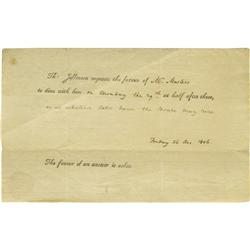 Th: Jefferson requests the favour of Mr. Masters
to dine with him on Monday the 29th at half after three,
or at whatever later hour the House may rise
Friday 26 Dec. 1806.
The favour of an answer is asked.